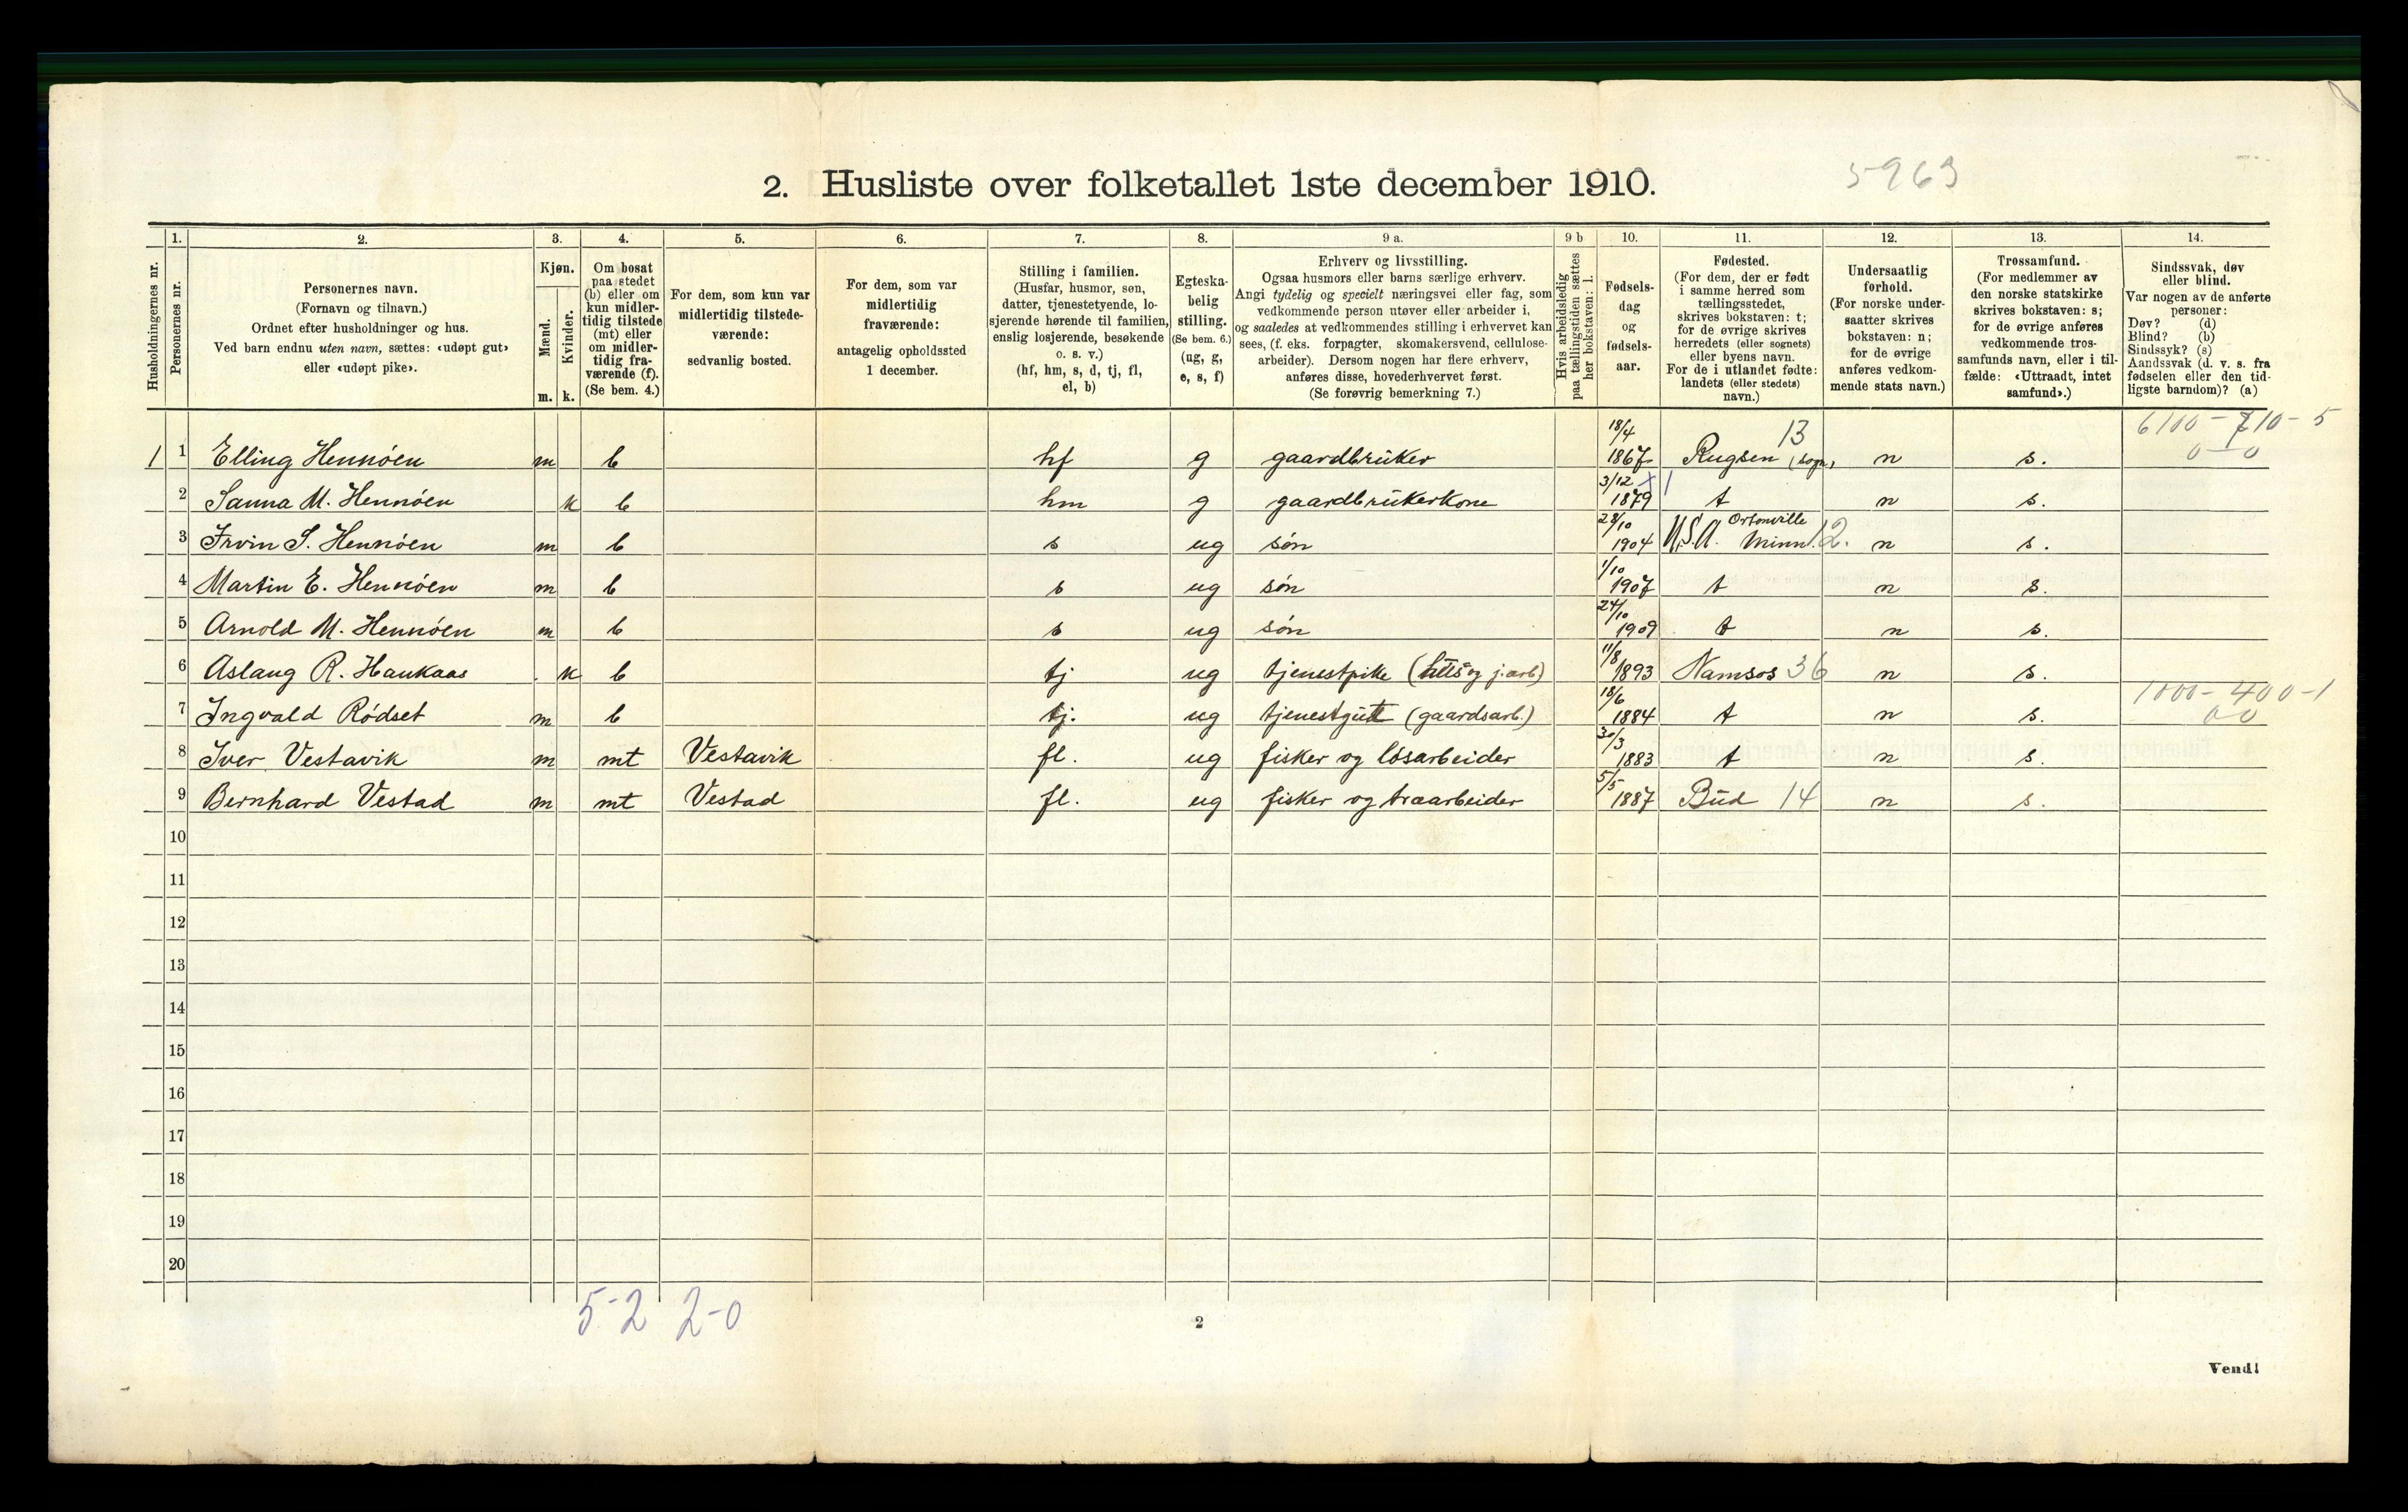 2. Husliste over folketallet 1ste december 1910.
5963
Husholdningernes nr.
1.
Personernes nr.
2.
Personernes navn.
(Fornavn og tilnavn.)
Ordnet efter husholdninger og hus.
Ved barn endnu uten navn, sættes: «udøpt gut»
eller «udøpt pike».
3.
Kjøn.
Mænd.
Kvinder.
m. k.
4.
Om bosat
paa stedet
(b) eller om
kun midler-
tidig tilstede
(mt) eller
om midler-
tidig fra-
værende (f).
(Se bem. 4.)
5.
For dem, som kun var
midlertidig tilstede-
værende:
sedvanlig bosted.
6.
For dem, som var
midlertidig
fraværende:
antagelig opholdssted
1 december.
7.
Stilling i familien.
(Husfar, husmor, søn,
datter, tjenestetyende, lo-
sjerende hørende til familien,
enslig losjerende, besøkende
o. s. v.)
(hf, hm, s, d, tj, fl,
el, b)
8.
Egteska-
belig
stilling.
(Se bem. 6.)
(ug, g,
e, s, f)
9 a.
Erhverv og livsstilling.
Ogsaa husmors eller barns særlige erhverv.
Angi tydelig og specielt næringsvei eller fag, som
vedkommende person utøver eller arbeider i,
og saaledes at vedkommendes stilling i erhvervet kan
sees, (f. eks. forpagter, skomakersvend, cellulose-
arbeider). Dersom nogen har flere erhverv,
anføres disse, hovederhvervet først.
(Se forøvrig bemerkning 7.)
9 b
Hvis arbeidsledig
paa tællingstiden sættes
her bokstaven: l.
10.
Fødsels-
dag
og
fødsels-
aar.
11.
Fødested.
(For dem, der er født
i samme herred som
tællingsstedet,
skrives bokstaven: t;
for de øvrige skrives
herredets (eller sognets)
eller byens navn.
For de i utlandet fødte:
landets (eller stedets)
navn.)
12.
Undersaatlig
forhold.
(For norske under-
saatter skrives
bokstaven: n;
for de øvrige
anføres vedkom-
mende stats navn.)
13.
Trossamfund.
(For medlemmer av
den norske statskirke
skrives bokstaven: s;
for de øvrige anføres
vedkommende tros-
samfunds navn, eller i til-
fælde: «Uttraadt, intet
samfund».)
14.
Sindssvak, døv
eller blind.
Var nogen av de anførte
personer:
Døv? (d)
Blind? (b)
Sindssyk? (s)
Aandssvak (d. v. s. fra
fødselen eller den tid-
ligste barndom)? (a)
1 1 Elling Hennöen m b hf g gaardbrüker 18/4 1867 Rugsen (sogn) 13 n s. 6100-710-5 0-0
2 Sanna M. Hennöen k b hm g gaardbrükerkone 3/12 1879 t n s.
3 Irvin S. Hennöen m b s ug sön 28/10 1904 U.S.A. Ortonville Minn. 12. n s.
4 Martin E. Hennöen m b s ug sön 1/10 1907 t n s.
5 Arnold M. Hennöen m b s ug sön 24/10 1909 t n s.
6 Aslaug R. Haukaas k b tj ug tjenestpike (hüs og j.arb) 11/8 1893 Namsos 36 n s.
7 Ingvald Rödset m b tj. ug tjenestgüt (gaardsarb.) 18/6 1884 t n s. 1000-400-1 00
8 Iver Vestavik m mt Vestavik fl. ug fisker og lösarbeider 30/3 1883 t n s.
9 Bernhard Vestad m mt Vestad fl. ug fisker og træarbeider 5/5 1887 Büd 14 n s.
10
11
12
13
14
15
16
17
18
19
20
5-2 2-0
2
Vend!